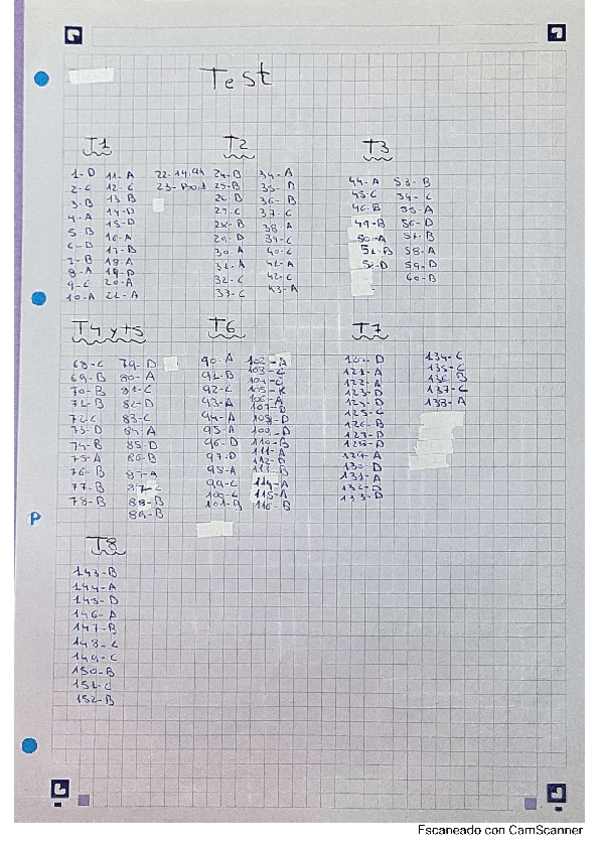 Test
T1
1-D
2-C
3-B
4-A
5 B
6-D
7-B
8-A
9-C
10-A
11-A
12-C
13 B
14-D
15-D
16-A
17-B
18-A
19-D
20-A
22-A
T2
24-B
25-B
26 D
27-C
28-B
29-D
30-A
32-C
33-C
34-A
35-
36-B
37-C
38-A
39-C
40-C
42-C
43-A
T3
44-A
45-C
46-B
49-B
50-A
53-B
54-C
55-A
56-D
58-A
59-D
60-B
T4 y T5
68-C
69-B
70-B
72-C
73-D
74-B
75-A
76-B
77-B
78-B
79-D
80-A
82-D
83-C
84-A
85-D
86-B
87-A
88-B
89-B
T6
90-A
92-C
93-A
94-A
95-A
96-D
97-D
98-A
99-C
102-A
103-C
106-A
107-D
108-D
109-D
110-B
111-A
112-B
113-B
114-A
115-A
116-B
T7
120-D
121-A
122-A
123-D
124-D
125-C
126-B
127-D
129-A
130-D
131-A
133-D
134-C
135-C
136-B
137-C
138-A
T8
143-B
144-A
145-D
146-A
147-B
148-C
149-C
150-B
151-C
152-B
Escaneado con CamScanner